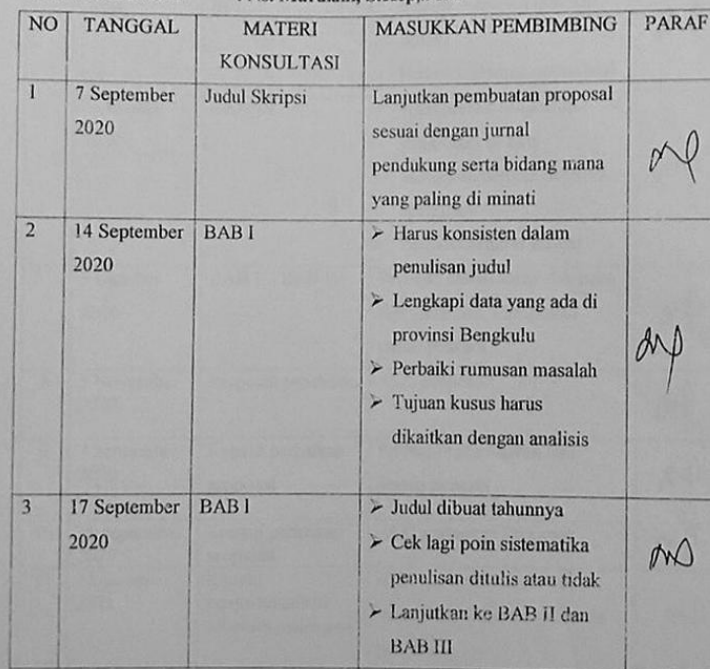 NO TANGGAL MATERI KONSULTASI MASUKKAN PEMBIMBING PARAF
1 7 September 2020 Judul Skripsi Lanjutkan pembuatan proposal
sesuai dengan jurnal
pendukung serta bidang mana
yang paling di minati
2 14 September 2020 BAB I ➢ Harus konsisten dalam
penulisan judul
➢ Lengkapi data yang ada di
provinsi Bengkulu
➢ Perbaiki rumusan masalah
➢ Tujuan kusus harus
dikaitkan dengan analisis
3 17 September 2020 BAB I ➢ Judul dibuat tahunnya
➢ Cek lagi poin sistematika
penulisan ditulis atau tidak
➢ Lanjutkan ke BAB II dan
BAB III